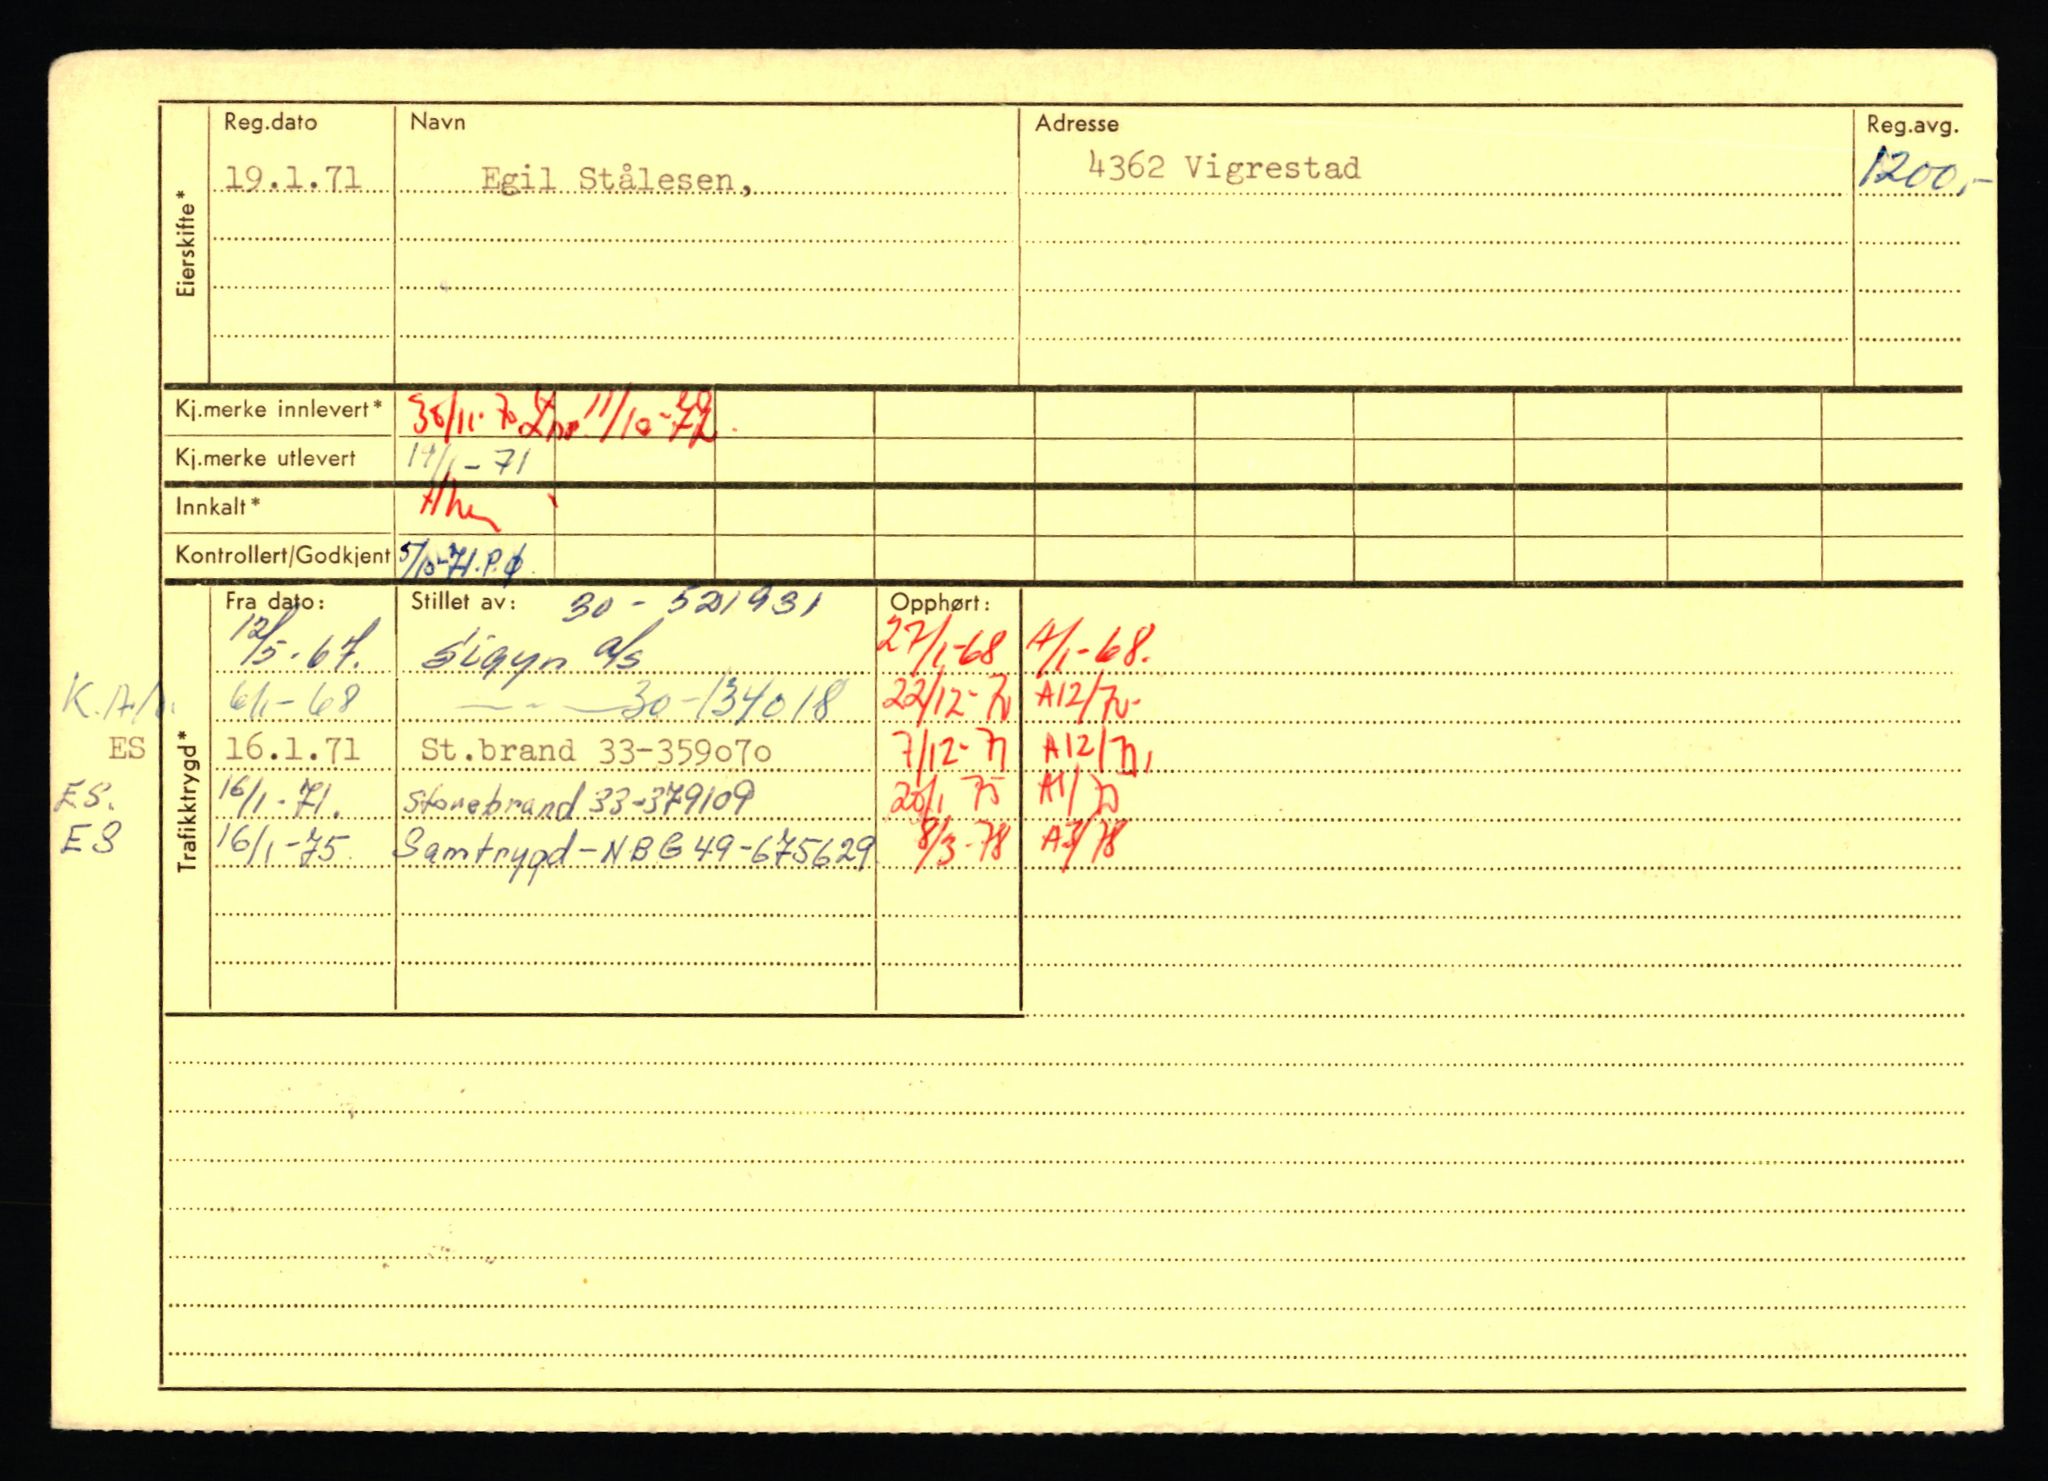 Reg.dato Navn Adresse Reg.avg.
19.1.71 Egil Stålesen, 4362 Vigrestad 1200,-
Eierskifte*
Kj.merke innlevert* 30/11-70 11/10-72.
Kj.merke utlevert 19/1-71
Innkalt*
Kontrollert/Godkjent 5/10-71.P.Ø.
Trafikktrygd*
Fra dato: Stillet av: 30-521931 Opphørt:
12/5-67. Sigyn a/s 27/1-68 A/1-68.
6/1-68 — " — 30-134018 22/12-70 A12/70-
ES 16.1.71 St.brand 33-359o7o 7/12-71 A12/71,
ES. 16/1-71. Storebrand 33-379109 20/1 75 A1/75
ES 16/1-75 Samtrygd-NBG 49-675629 8/3-78 A3/78